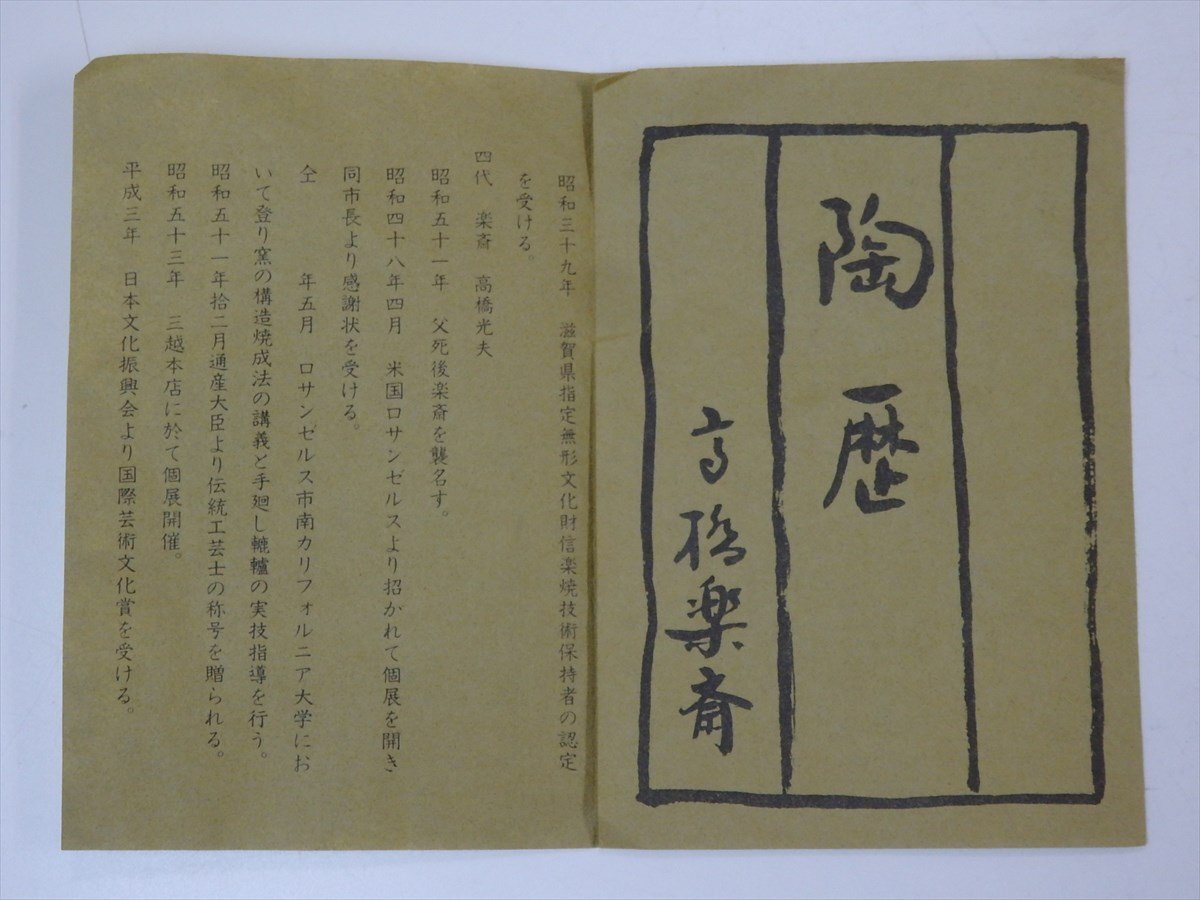 陶歴
高橋楽斎
昭和三十九年 滋賀県指定無形文化財信楽焼技術保持者の認定
を受ける。
四代 楽斎 高橋光夫
昭和五十一年 父死後楽斎を襲名す。
昭和四十八年四月 米国ロサンゼルスより招かれて個展を開き
同市長より感謝状を受ける。
仝 年五月 ロサンゼルス市南カリフォルニア大学にお
いて登り窯の構造焼成法の講義と手廻し轆轤の実技指導を行う。
昭和五十一年拾二月通産大臣より伝統工芸士の称号を贈られる。
昭和五十三年 三越本店に於て個展開催。
平成三年 日本文化振興会より国際芸術文化賞を受ける。